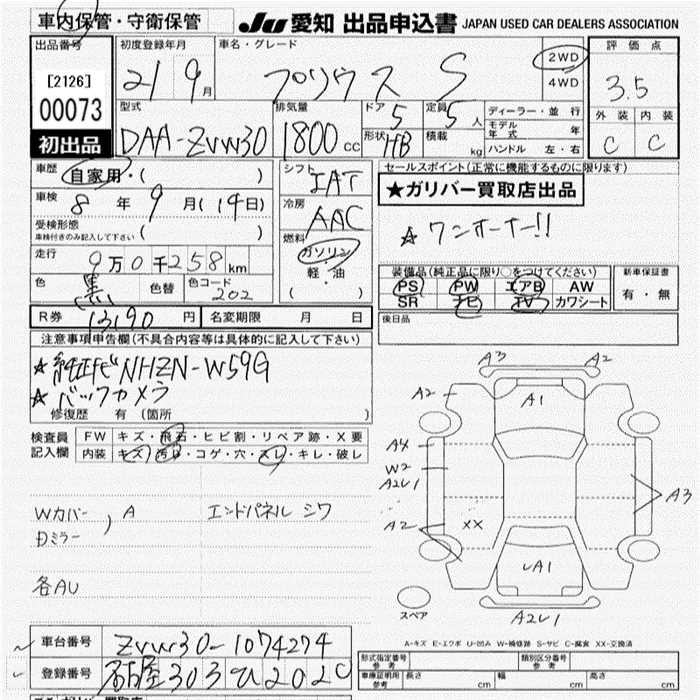 車内保管・守衛保管
Ju 愛知 出品申込書 JAPAN USED CAR DEALERS ASSOCIATION
出品番号 初度登録年月 車名・グレード 評価点
[2126] 21 9月 プリウス S 2WD 4WD 3.5
00073
型式 排気量 ドア 定員 ディーラー・並行 外装 内装
初出品 DAA-ZVW30 1800cc 5 5人 モデル年式 年 C C
形状 HB 積載 kg ハンドル 左・右
車歴 自家用・( ) シフト IAT セールスポイント(正常に機能するものに限ります)
★ガリバー買取店出品
車検 8年 9月(19日) 冷房 AAC
☆ワンオーナー!!
受検形態 ( )
車検付きのみ記入して下さい
燃料 ガソリン 軽・油 ( )
走行 9万0千258km
装備品(純正品に限り○をつけてください) 新車保証書
色 黒 色替 色コード 202
PS PW エアB AW 有・無
SR ナビ TV カワシート
R券 13190円 名変期限 月 日 後日品
注意事項申告欄(不具合内容等は具体的に記入して下さい)
☆純正ナビNHZN-W59G
☆バックカメラ
修復歴 有(箇所 )
検査員記入欄 FW キズ・飛石・ヒビ割・リペア跡・X要
内装 キズ・汚れ・コゲ・穴・スレ・キレ・破レ
Wカバー, A エンドパネル シワ
Dミラー
各AU
A3 A2
A2 A1
A4
W2
A2U1
A3
A2 XX
UA1
スペア A2U1
A-キズ E-エクボ U-凹み W-補修跡 S-サビ C-腐食 XX-交換済
車台番号 ZVW30-1074274
登録番号 名古屋303ひ2020
形式指定番号 参考 類別区分番号 参考
車庫証明用 参考 長さ cm 幅 cm 高さ cm